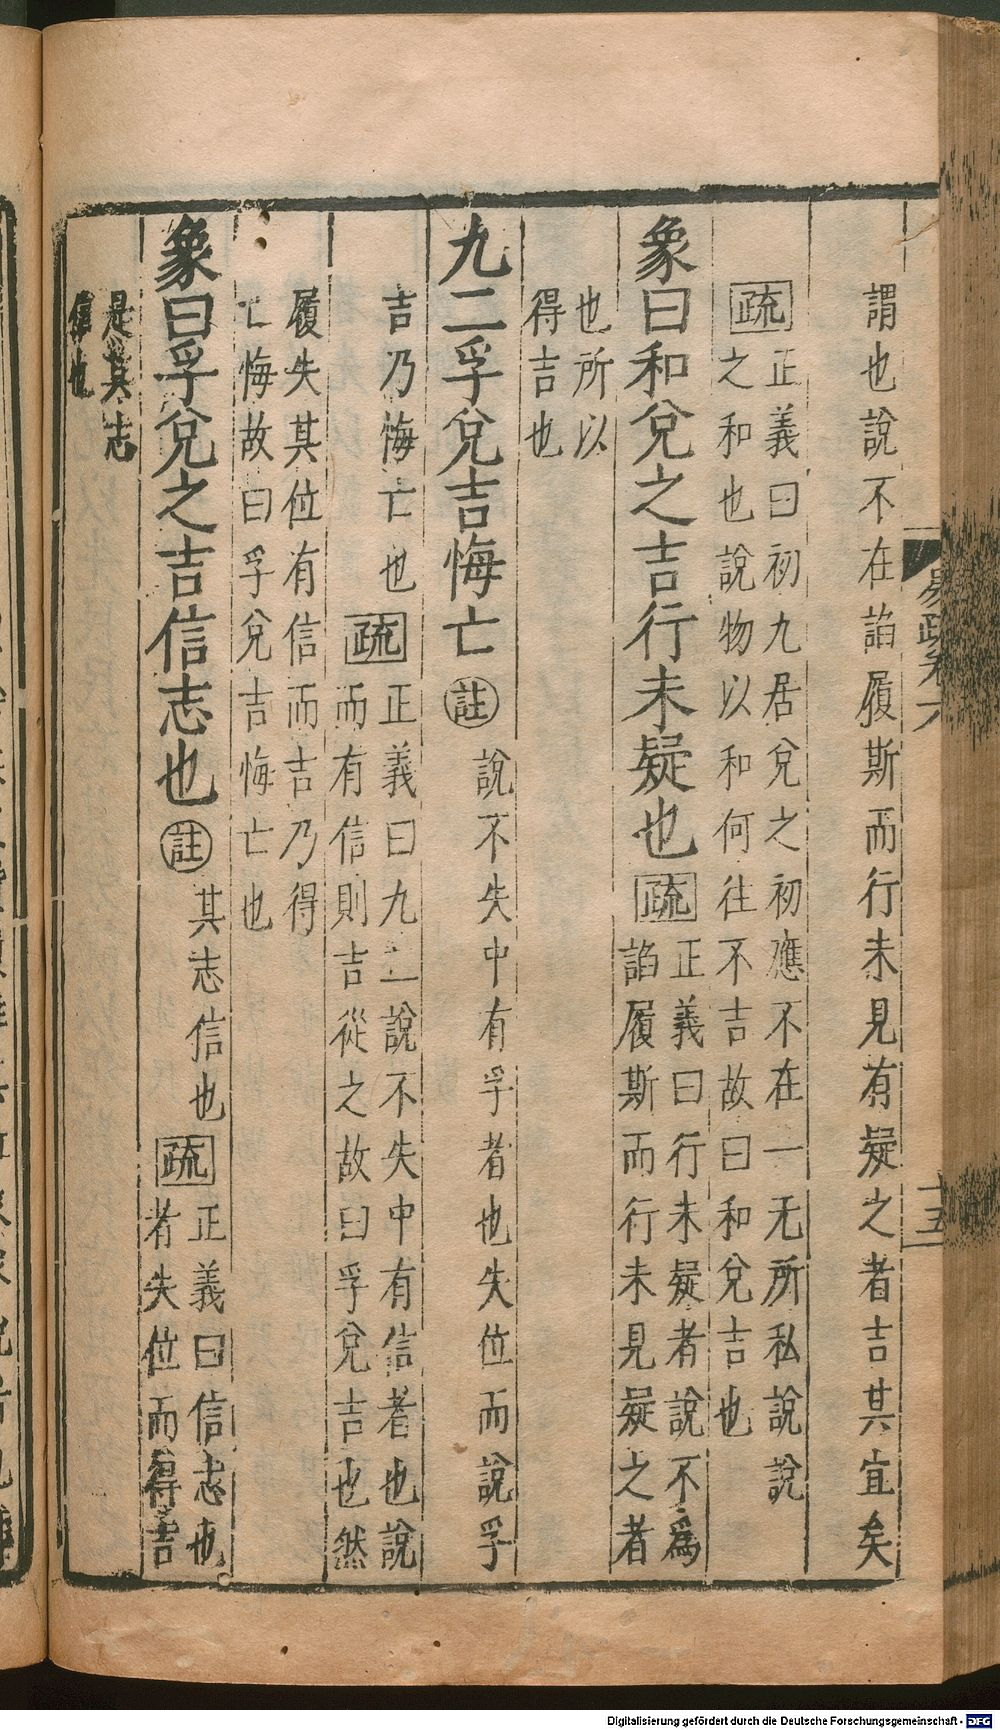 謂也說不在諂履斯而行未見有疑之者吉其宜矣
疏正義曰初九居兌之初應不在一无所私說說
之和也說物以和何往不吉故曰和兌吉也
象曰和兌之吉行未疑也疏正義曰行未疑者說不爲
諂履斯而行未見疑之者
也所以
得吉也
九二孚兌吉悔亡註說不失中有孚者也失位而說孚
吉乃悔亡也疏正義曰九二說不失中有信者也說
而有信則吉從之故曰孚兌吉也然
履失其位有信而吉乃得
亡悔故曰孚兌吉悔亡也
象曰孚兌之吉信志也註其志信也疏正義曰信志也
者失位而得吉
是其志
信也
易疏卷六
十五
Digitalisierung gefördert durch die Deutsche Forschungsgemeinschaft - DFG